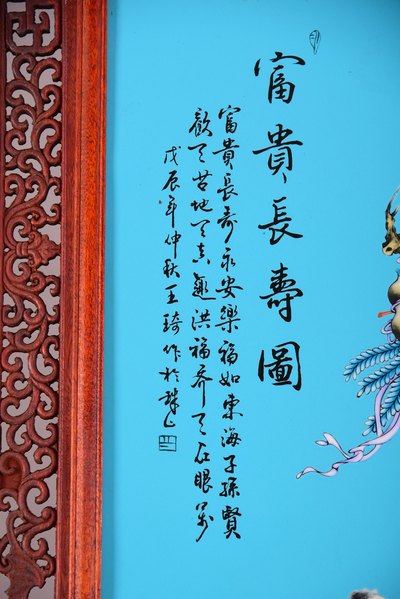 富貴長壽圖
富貴長壽永安樂福如東海子孫賢
歡天苦地天真趣洪福齊天在眼
戊辰年仲秋王琦作於珠山